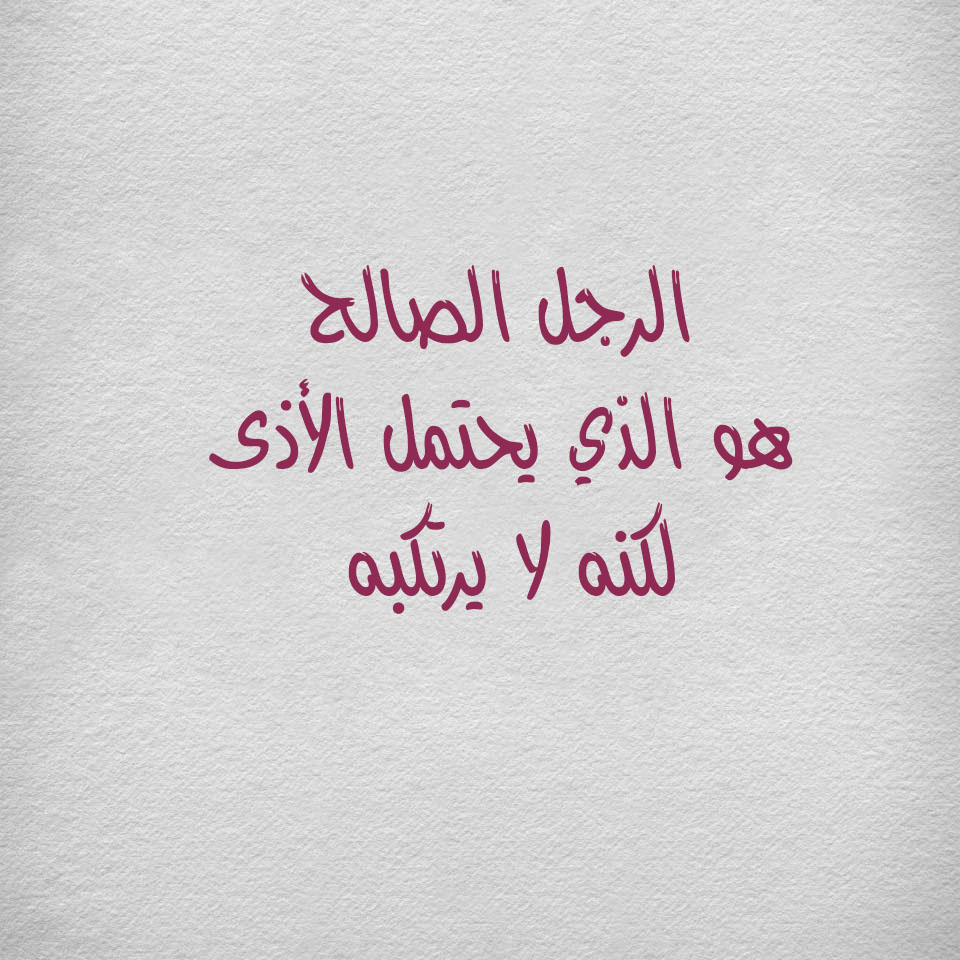 الرجل الصالح
هو الذي يحتمل الأذى
لكنه لا يرتكبه